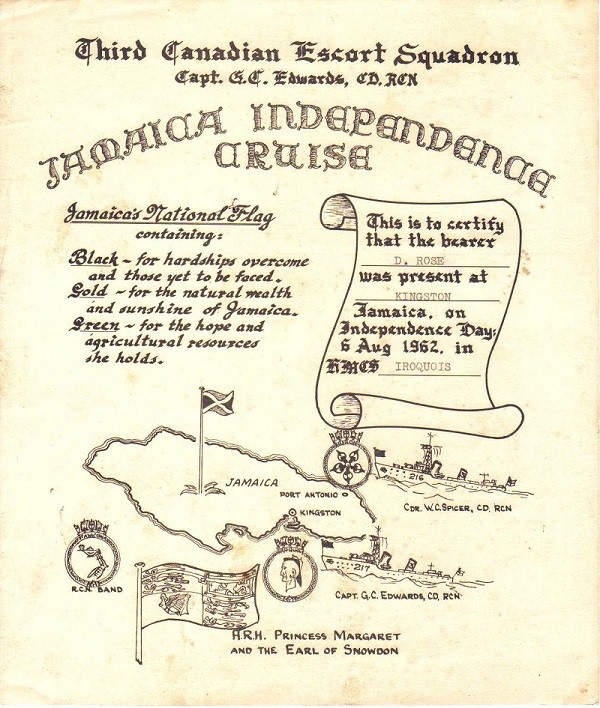 Third Canadian Escort Squadron
Capt. G.C. Edwards, CD, RCN
JAMAICA INDEPENDENCE
CRUISE
Jamaica's National Flag
containing:
Black ~ for hardships overcome
and those yet to be faced.
Gold ~ for the natural wealth
and sunshine of Jamaica.
Green ~ for the hope and
agricultural resources
she holds.
This is to certify
that the bearer
D. ROSE
was present at
KINGSTON
Jamaica, on
Independence Day;
6 Aug 1962, in
HMCS IROQUOIS
JAMAICA
PORT ANTONIO
KINGSTON
216
CDR. W.C. SPICER, CD, RCN
217
CAPT. G.C. EDWARDS, CD, RCN
R.C.N. BAND
H.R.H. PRINCESS MARGARET
AND THE EARL OF SNOWDON